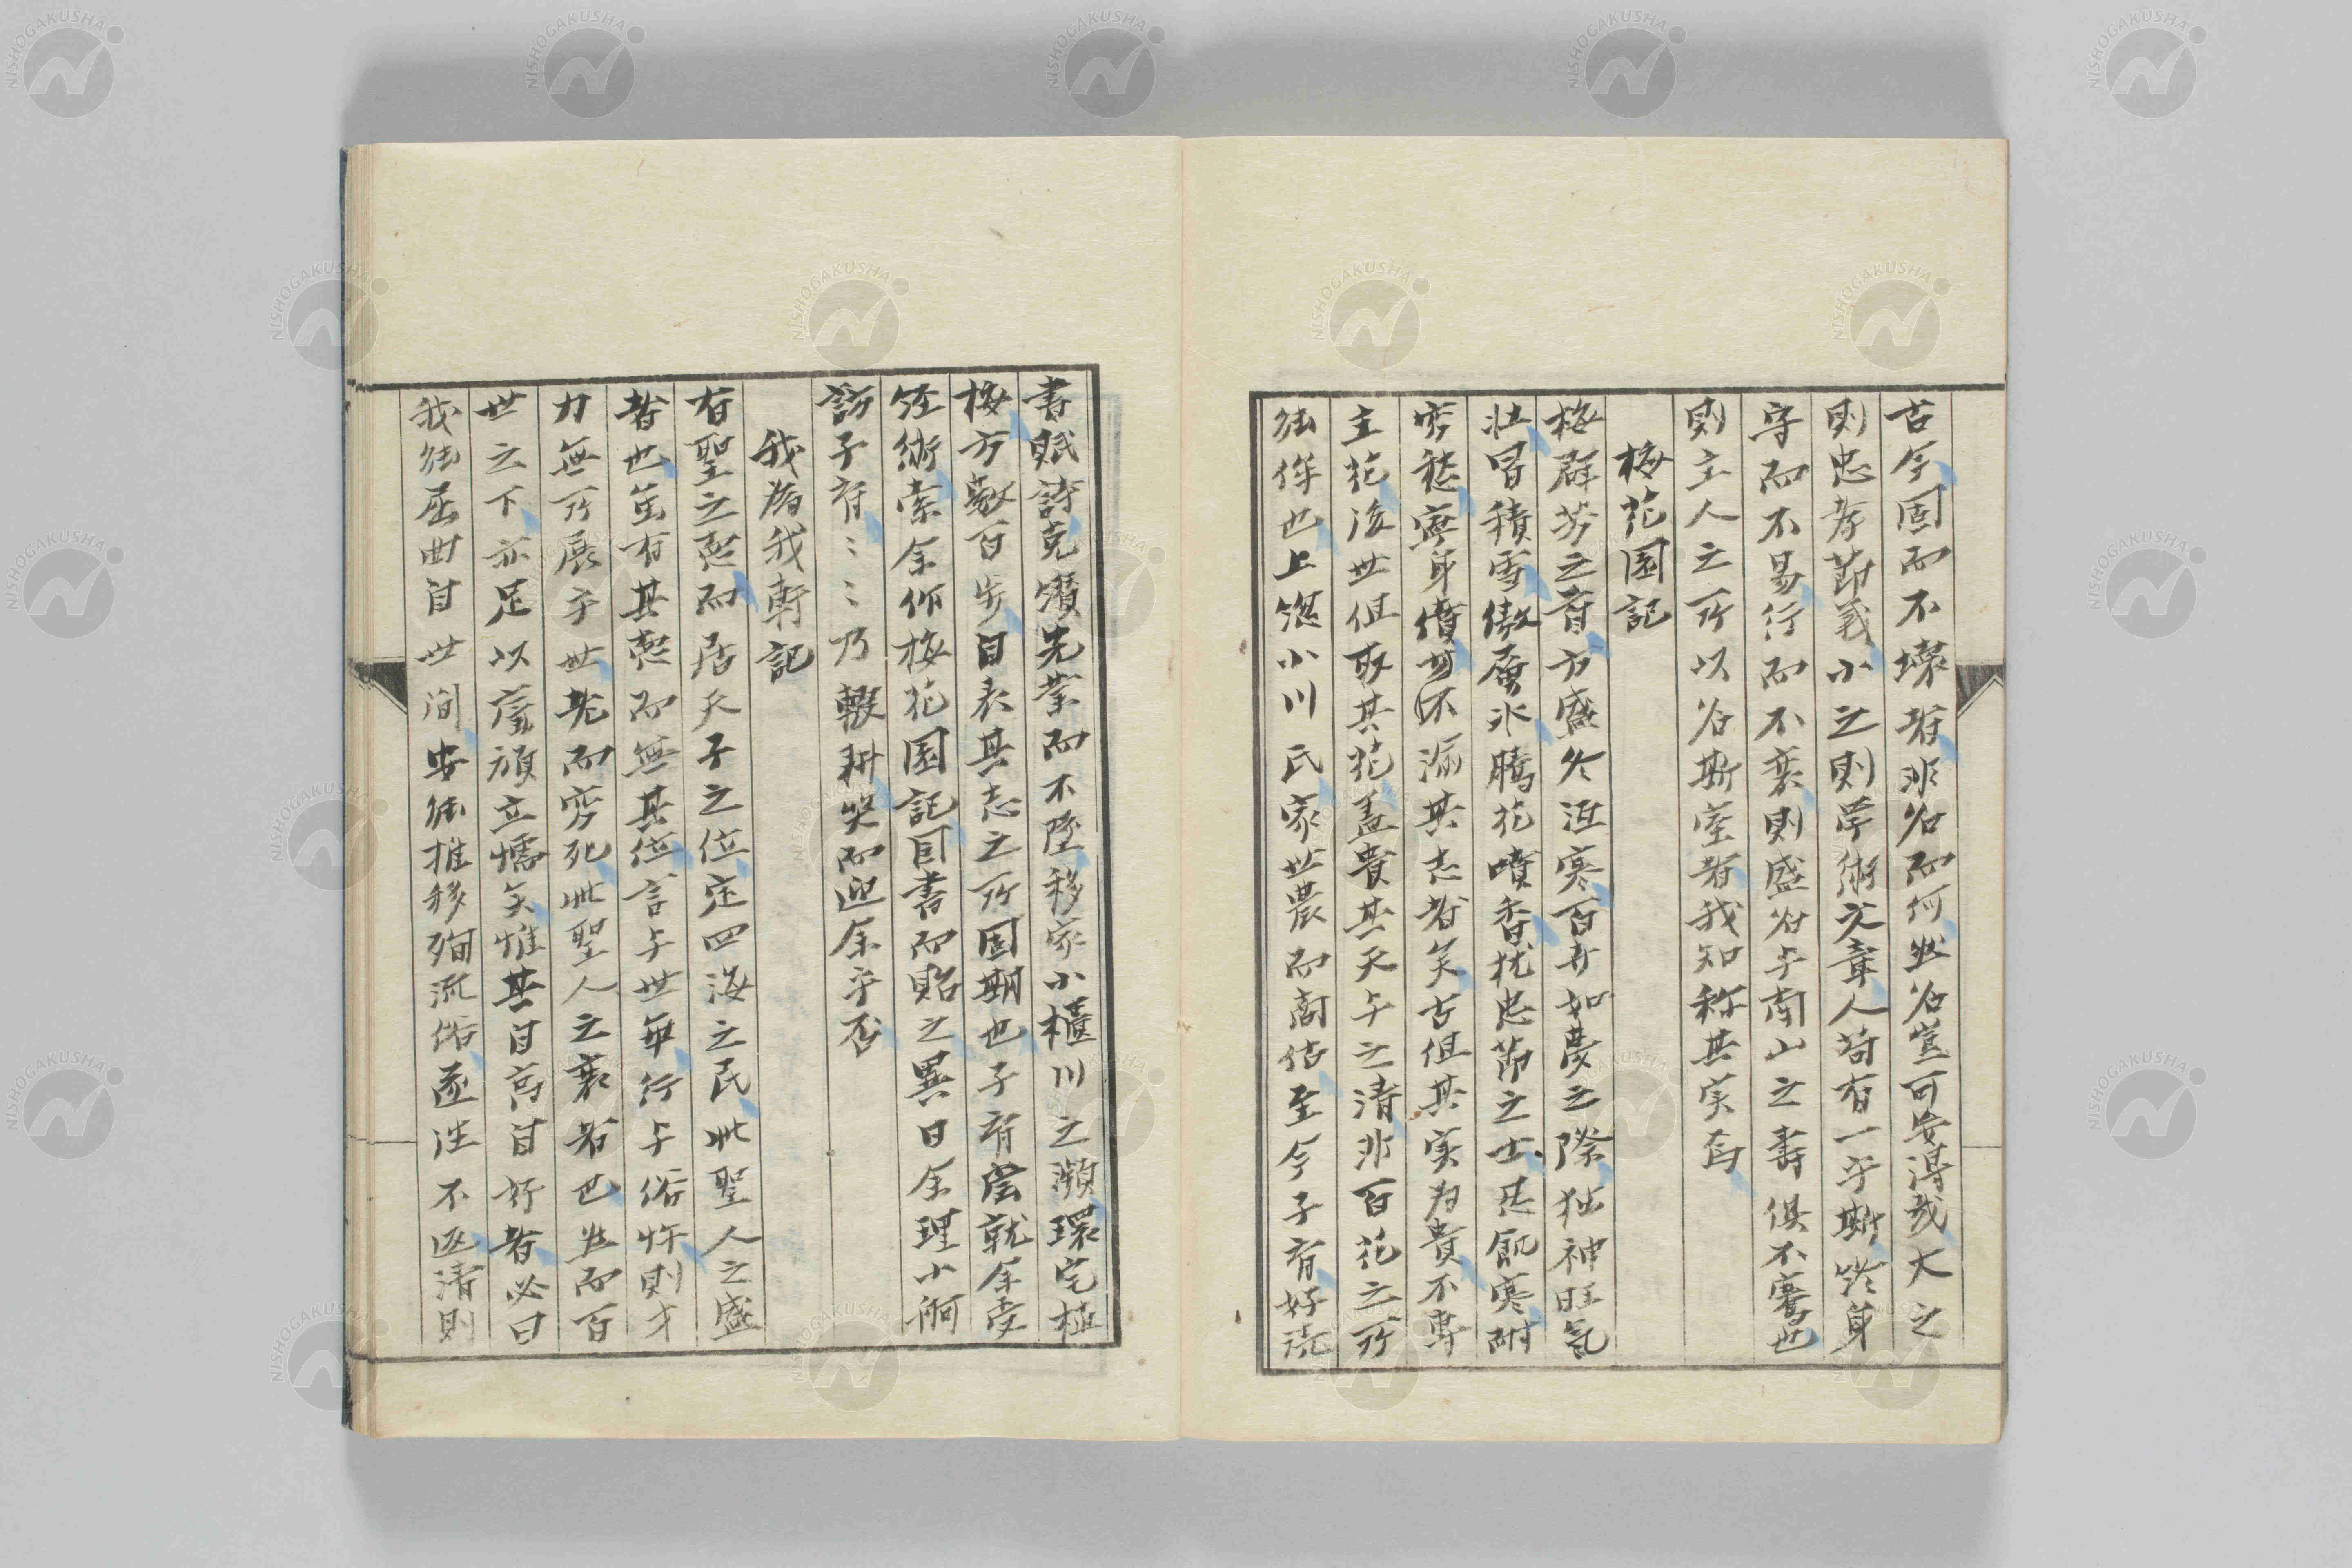 古今固而不壊者非谷而何然谷豈可安得哉大之
則忠孝節義小之則学術文章人苟有一乎斯終身
守而不易行而不衰則盛谷与南山之壽俱不騫也
則主人之所以谷斯堂者我知称其実為
梅花園記
梅群芳之首方盛冬沍寒百卉如痩之際独神旺気
壮冒積雪傲層氷騰花噴香猶忠節之士忍飢寒耐
窮愁寧身僨不渝其志者矣古但其実为貴不専
主花後世但取其花盖貴其天与之清非百花之所
能侔也上毖小川氏家世農而商估至今子有好読
書賦詩克纉先業而不墜移家小櫃川之瀕環宅植
梅方数百步自表其志之所固期也子有嘗就余受
経術索余作梅花園記因書而貽之異日余理小舸
訪子有〻〻乃輟耕笑而迎余乎否
我為我軒記
有聖之徳而居天子之位定四海之民此聖人之盛
者也茍有其徳而無其位言与世乖行与俗忤則才
力無所展于世老而窮死此聖人之衰者也然而百
世之下亦足以廉頑立懦矣惟其自高自好者必曰
我能屈曲自世间安能推移殉流俗遂往不返清則
NISHOGAKUSHA